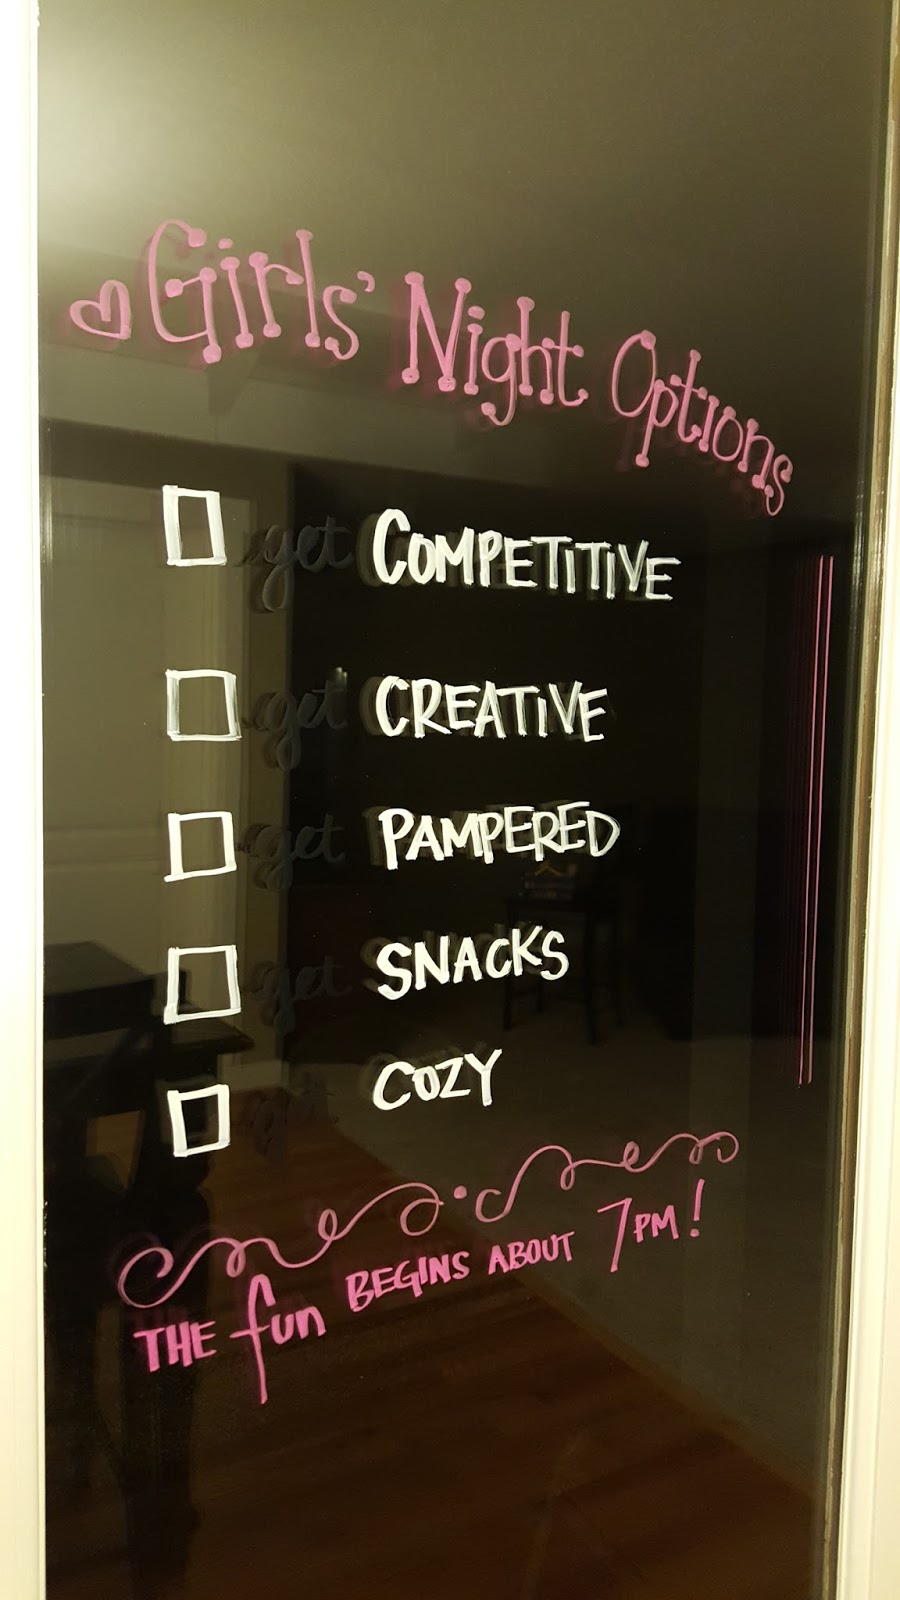 Girls' Night Options
get COMPETITIVE
get CREATIVE
get PAMPERED
get SNACKS
get COZY
THE fun BEGINS ABOUT 7PM!